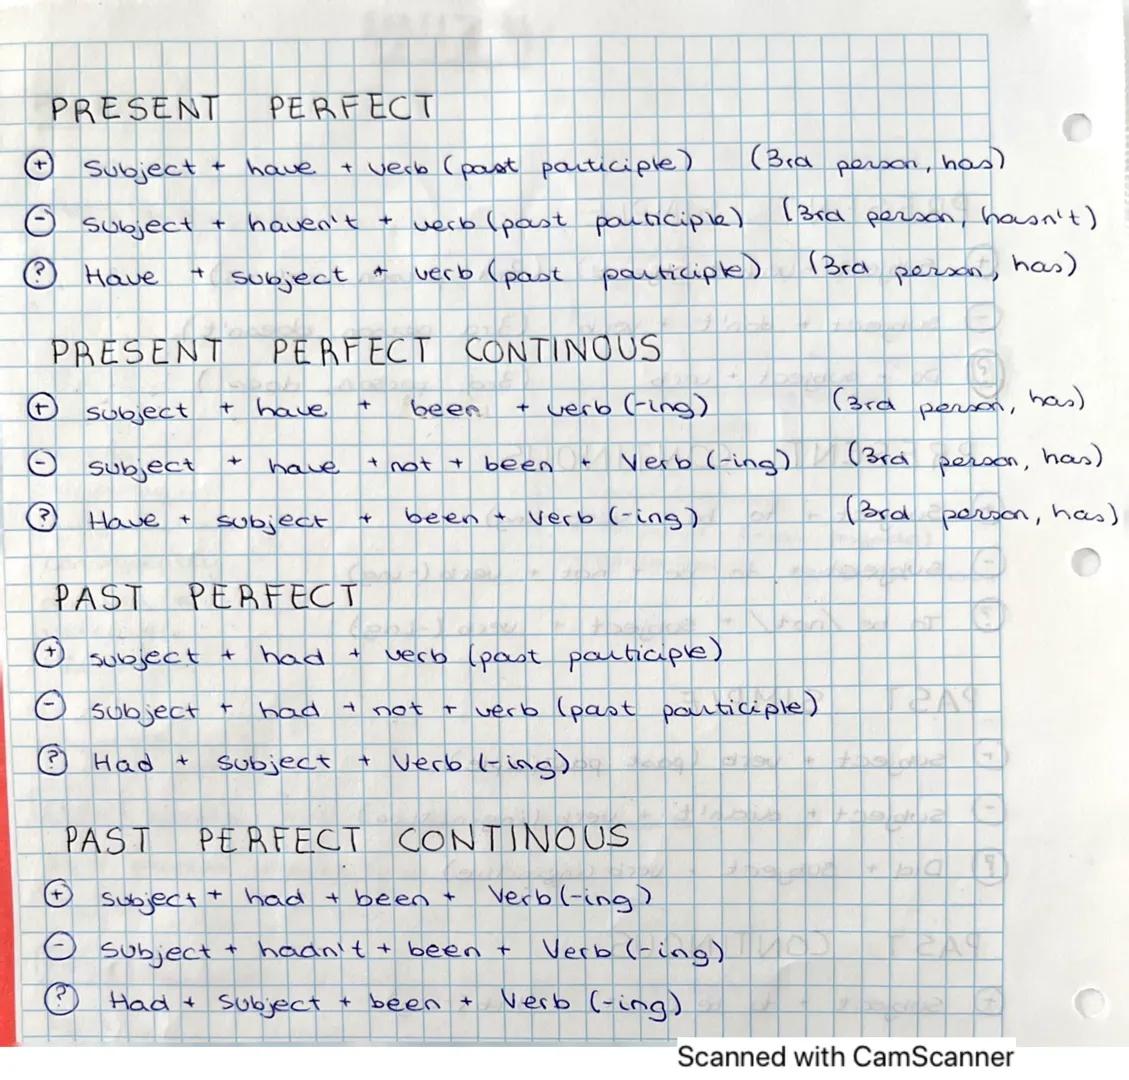 PRESENT PERFECT
(+) Subject + have + verb (past participle) (3rd person, has)
(-) subject + haven't + verb (past participle) (3rd person, hasn't)
(?) Have + subject + verb (past participle) (3rd person, has)
PRESENT PERFECT CONTINOUS
(+) subject + have + been + verb (-ing) (3rd person, has)
(-) subject + have + not + been + Verb (-ing) (3rd person, has)
(?) Have + subject + been + Verb (-ing) (3rd person, has)
PAST PERFECT
(+) subject + had + verb (past participle)
(-) subject + had + not + verb (past participle)
(?) Had + subject + Verb (-ing)
PAST PERFECT CONTINOUS
(+) subject + had + been + Verb (-ing)
(-) subject + hadn't + been + Verb (-ing)
(?) Had + subject + been + Verb (-ing)
Scanned with CamScanner